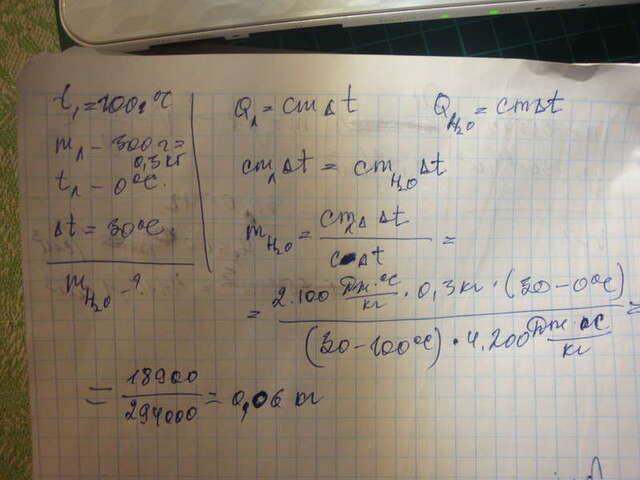 t₁ = 100,°C
m_л - 300 г =
0,3 кг
t_л - 0°C.
Δt = 30°C
m_H₂O - ?
Q_л = cmΔt    Q_H₂O = cmΔt
cm_лΔt = cm_H₂O Δt
m_H₂O = cm_лΔ Δt / cΔt =
= 2.100 Дж·°C/кг · 0,3 кг · (30 - 0°C) / (30 - 100°C) · 4.200 Дж·°C/кг =
= 18900 / 294000 = 0,06 кг